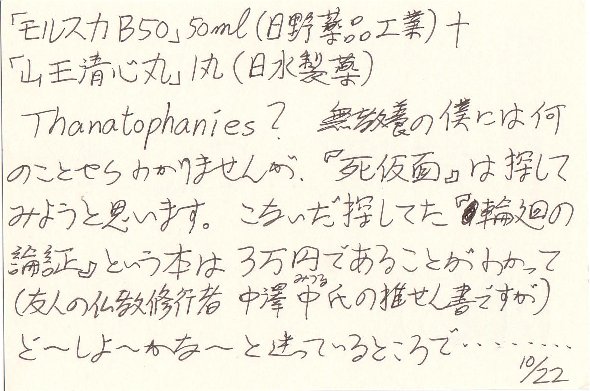 「モルスカB50」50ml(日野薬品工業)+
「山王清心丸」1丸(日水製薬)
Thanatophanies? 無教養の僕には何
のことやらわかりませんが、『死仮面』は探して
みようと思います。こないだ探してた『輪廻の
論証』という本は3万円であることがわかって
(友人の仏教修行者 中澤中(みつる)氏の推せん書ですが)
ど〜しよ〜かな〜と迷っているところで………
10/22